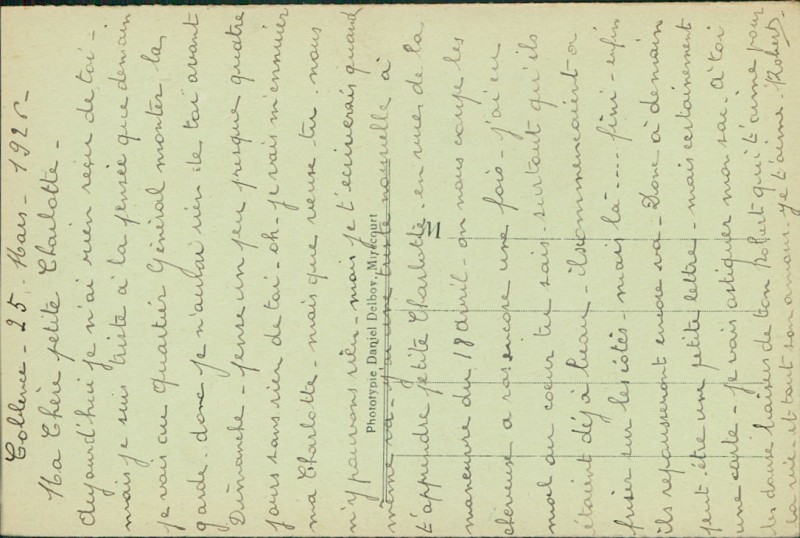 Coblence - 25 - Mars - 1925 -
Ma Chère petite Charlotte -
Aujourd'hui je n'ai rien reçu de toi -
mais je suis triste à la pensée que demain
je vais au Quartier Général monter la
garde. donc je n'aurai rien de toi avant
Dimanche - pense un peu presque quatre
jours sans rien de toi - oh - je vais m'ennuier
ma Charlotte - mais que veux-tu - nous
n'y pouvons rien - mais je t'écriverais quand
même va - j'ai une triste nouvelle à
t'apprendre petite Charlotte - en vues de la
manœuvre du 18 avril - on nous coupe les
cheveux a ras encore une fois - j'ai eu
mal au cœur tu sais - surtout qu'ils
étaient déjà beau - ils commencaient a
friser sur les côtés - mais là .... fini - enfin
ils repousseront encore va - Donc à demain
peut être une petite lettre - mais certainement
une carte - je vais astiquer mon sac. à toi
les doux baisers de ton Robert qui t'aime pour
la vie - et tout son amour. je t'aime. Robert.
Phototypie Daniel Delboy, Mirecourt
M